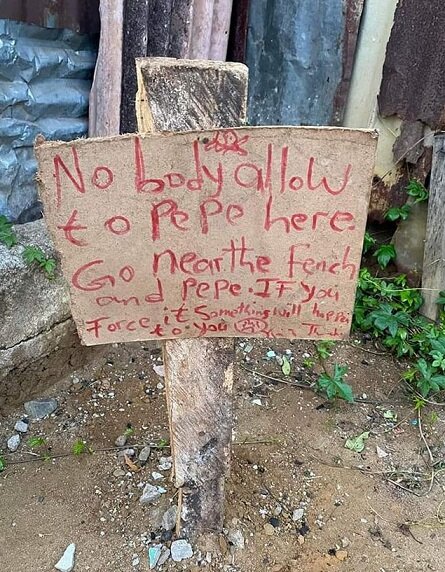 No body allow
to PePe here.
Go near the fench
and Pepe. IF you
Force it Something will happen
to you